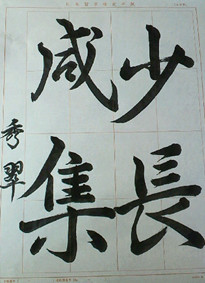 少長
咸集
秀翠